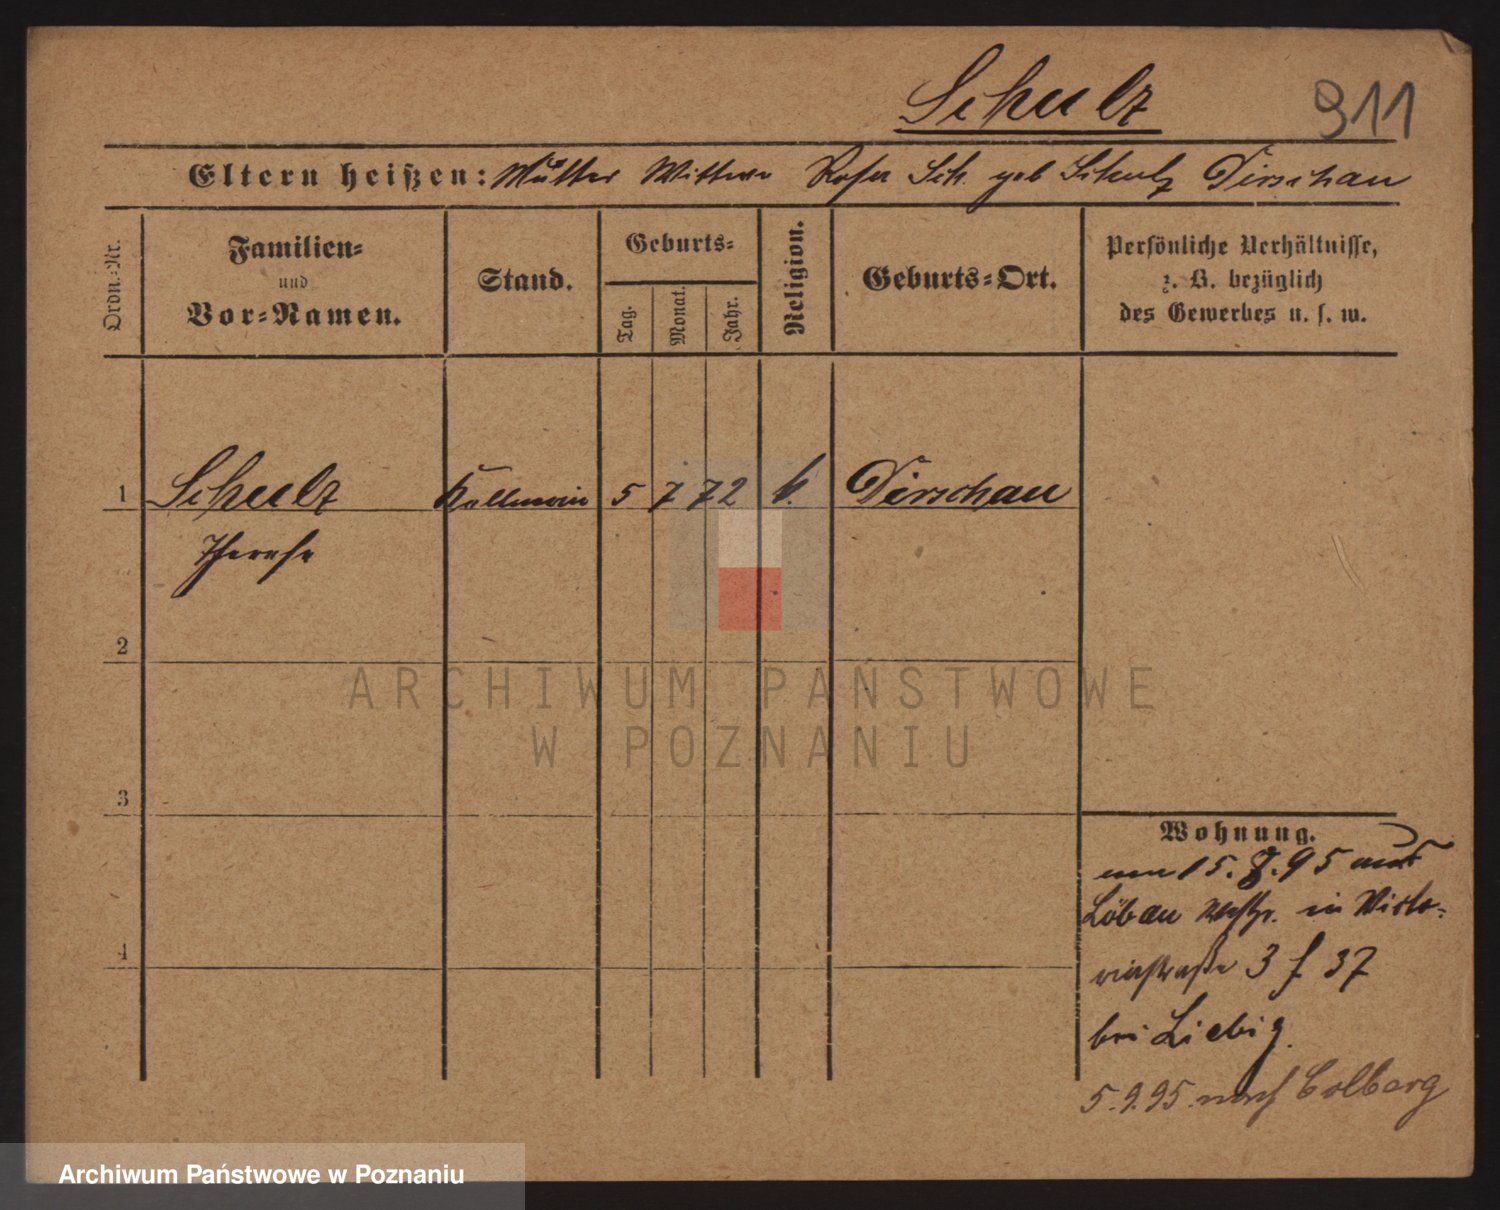 Schulz 911
Eltern heißen: Mutter Wittwe Rosa Sch. geb Schulz Dirschau
Ordn.-Nr.
Familien-
und
Vor-Namen.
Stand.
Geburts-
Tag.
Monat.
Jahr.
Religion.
Geburts-Ort.
Persönliche Verhältnisse,
z. B. bezüglich
des Gewerbes u. s. w.
1 Schulz Kellnerin 5 7 72 k. Dirschau
Therese
2
3
4
Wohnung.
15. 8. 95 aus
Löbau Westpr. in Victo-
riastraße 3 f 37
bei Liebig.
5.9.95. nach Colberg
ARCHIWUM PAŃSTWOWE
W POZNANIU
Archiwum Państwowe w Poznaniu